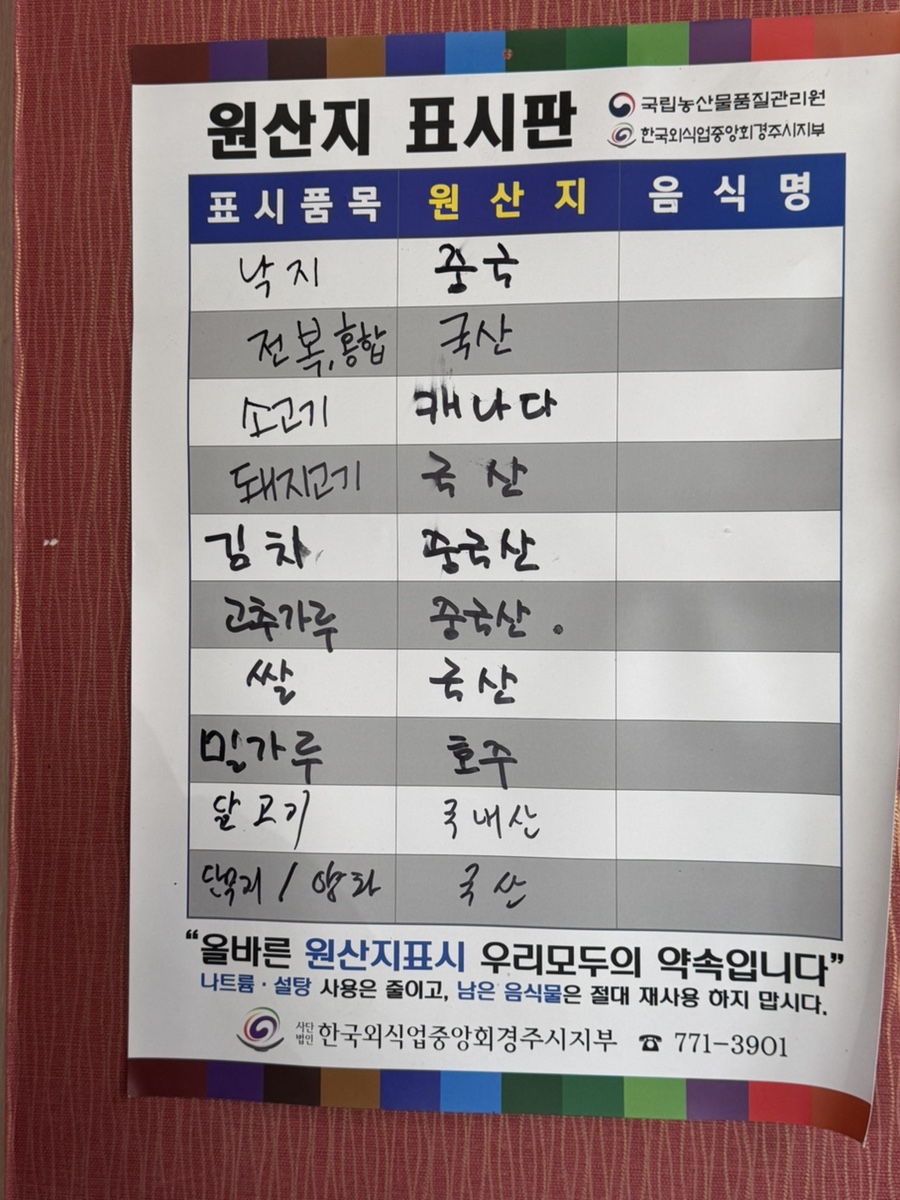 원산지 표시판
국립농산물품질관리원
한국외식업중앙회경주시지부
표시품목 원산지 음식명
낙지 중국
전복,홍합 국산
소고기 캐나다
돼지고기 국산
김치 중국산
고추가루 중국산.
쌀 국산
밀가루 호주
닭고기 국내산
/ 양파 국산
“올바른 원산지표시 우리모두의 약속입니다”
나트륨·설탕 사용은 줄이고, 남은 음식물은 절대 재사용 하지 맙시다.
사단법인 한국외식업중앙회경주시지부 ☎ 771-3901